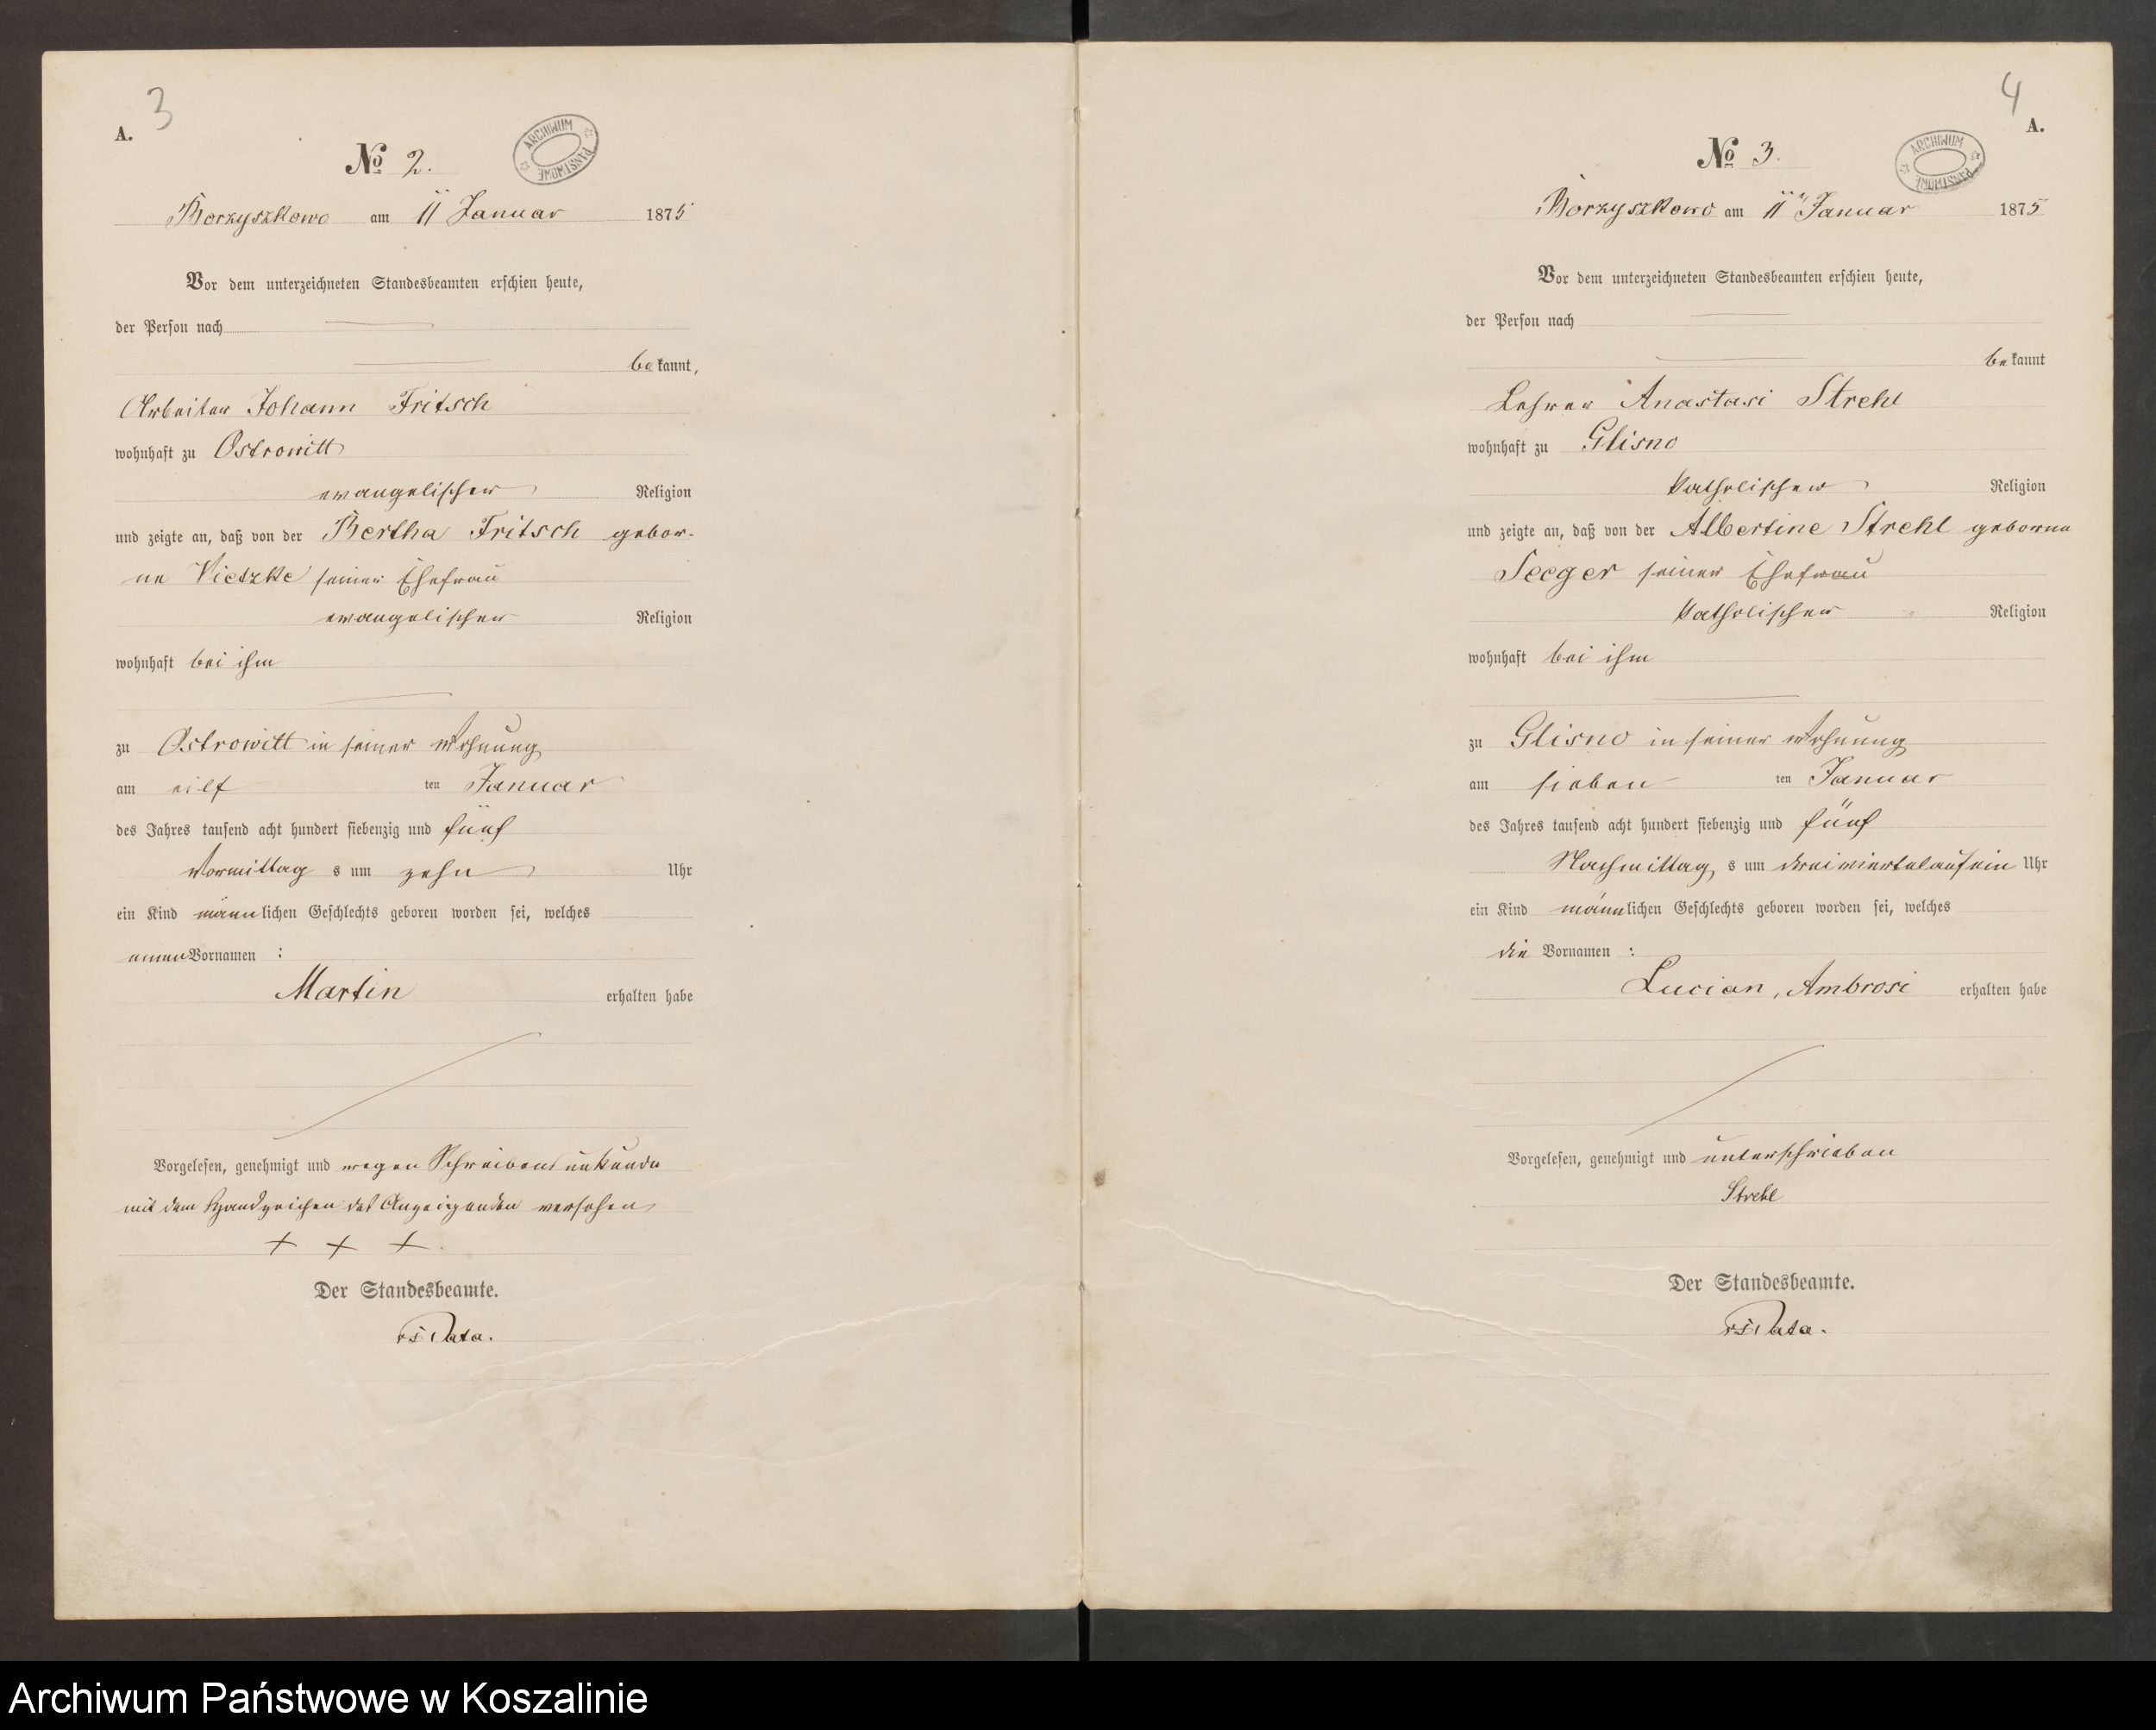 3
A.
ARCHIWUM PAŃSTWOWE
№ 2.
Borzyszkowo am 11 Januar 1875
Vor dem unterzeichneten Standesbeamten erschien heute,
der Person nach
bekannt,
Arbeiter Johann Fritsch
wohnhaft zu Ostrowitt
evangelischer Religion
und zeigte an, daß von der Bertha Fritsch gebor-
ne Vietzke seiner Ehefrau
evangelischer Religion
wohnhaft bei ihm
zu Ostrowitt in seiner Wohnung
am eilf ten Januar
des Jahres tausend acht hundert siebenzig und fünf
Vormittag s um zehn Uhr
ein Kind männlichen Geschlechts geboren worden sei, welches
einen Vornamen :
Martin erhalten habe
Vorgelesen, genehmigt und wegen Schreibensunkunde
mit dem Handzeichen des Anzeigenden versehen
+ + +
Der Standesbeamte.
4
A.
ARCHIWUM PAŃSTWOWE
№ 3.
Borzyszkowo am 11 Januar 1875
Vor dem unterzeichneten Standesbeamten erschien heute,
der Person nach
bekannt
Lehrer Anastasi Strehl
wohnhaft zu Glisno
katholischer Religion
und zeigte an, daß von der Albertine Strehl geborne
Seeger seiner Ehefrau
katholischer Religion
wohnhaft bei ihm
zu Glisno in seiner Wohnung
am sieben ten Januar
des Jahres tausend acht hundert siebenzig und fünf
Nachmittag s um dreiviertelaufein Uhr
ein Kind männlichen Geschlechts geboren worden sei, welches
die Vornamen :
Lucian, Ambrosi erhalten habe
Vorgelesen, genehmigt und unterschrieben
Strehl
Der Standesbeamte.
Archiwum Państwowe w Koszalinie